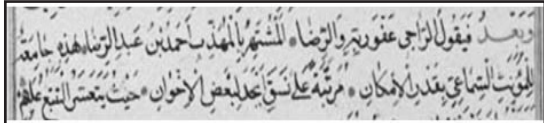 وبعد فيقول الراجي عفو ربه والرضا المشتهر بالمهذب أحمد بن عبد الرضا هذه جامعة
للمؤنث السماعي بقدر الامكان مرتبة على نسق ابجد لبعض الاخوان حيث يتعسر التتبع عليهم